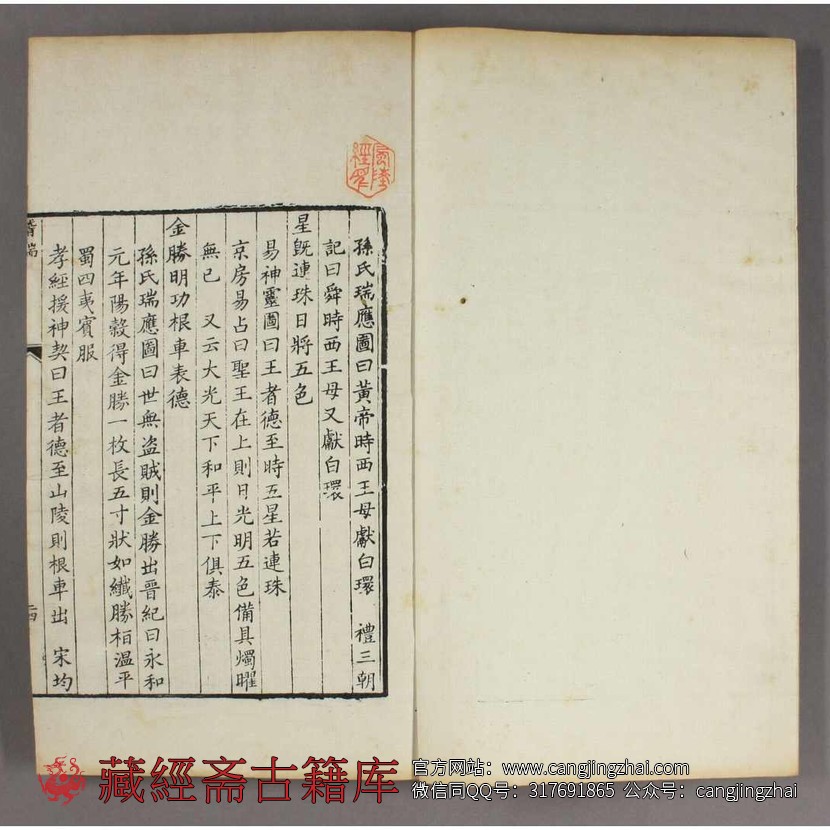 孫氏瑞應圖曰黃帝時西王母獻白環 禮三朝
記曰舜時西王母又獻白環
星旣連珠日將五色
易神靈圖曰王者德至時五星若連珠
京房易占曰聖王在上則日光明五色備具燭曜
無已 又云大光天下和平上下俱泰
金勝明功根車表德
孫氏瑞應圖曰世無盜賊則金勝出晉紀曰永和
元年陽榖得金勝一枚長五寸狀如織勝栢溫平
蜀四夷賓服
孝經援神契曰王者德至山陵則根車出 宋均
藏經斋古籍库
官方网站：www.cangjingzhai.com
微信同QQ号：317691865 公众号：cangjingzhai